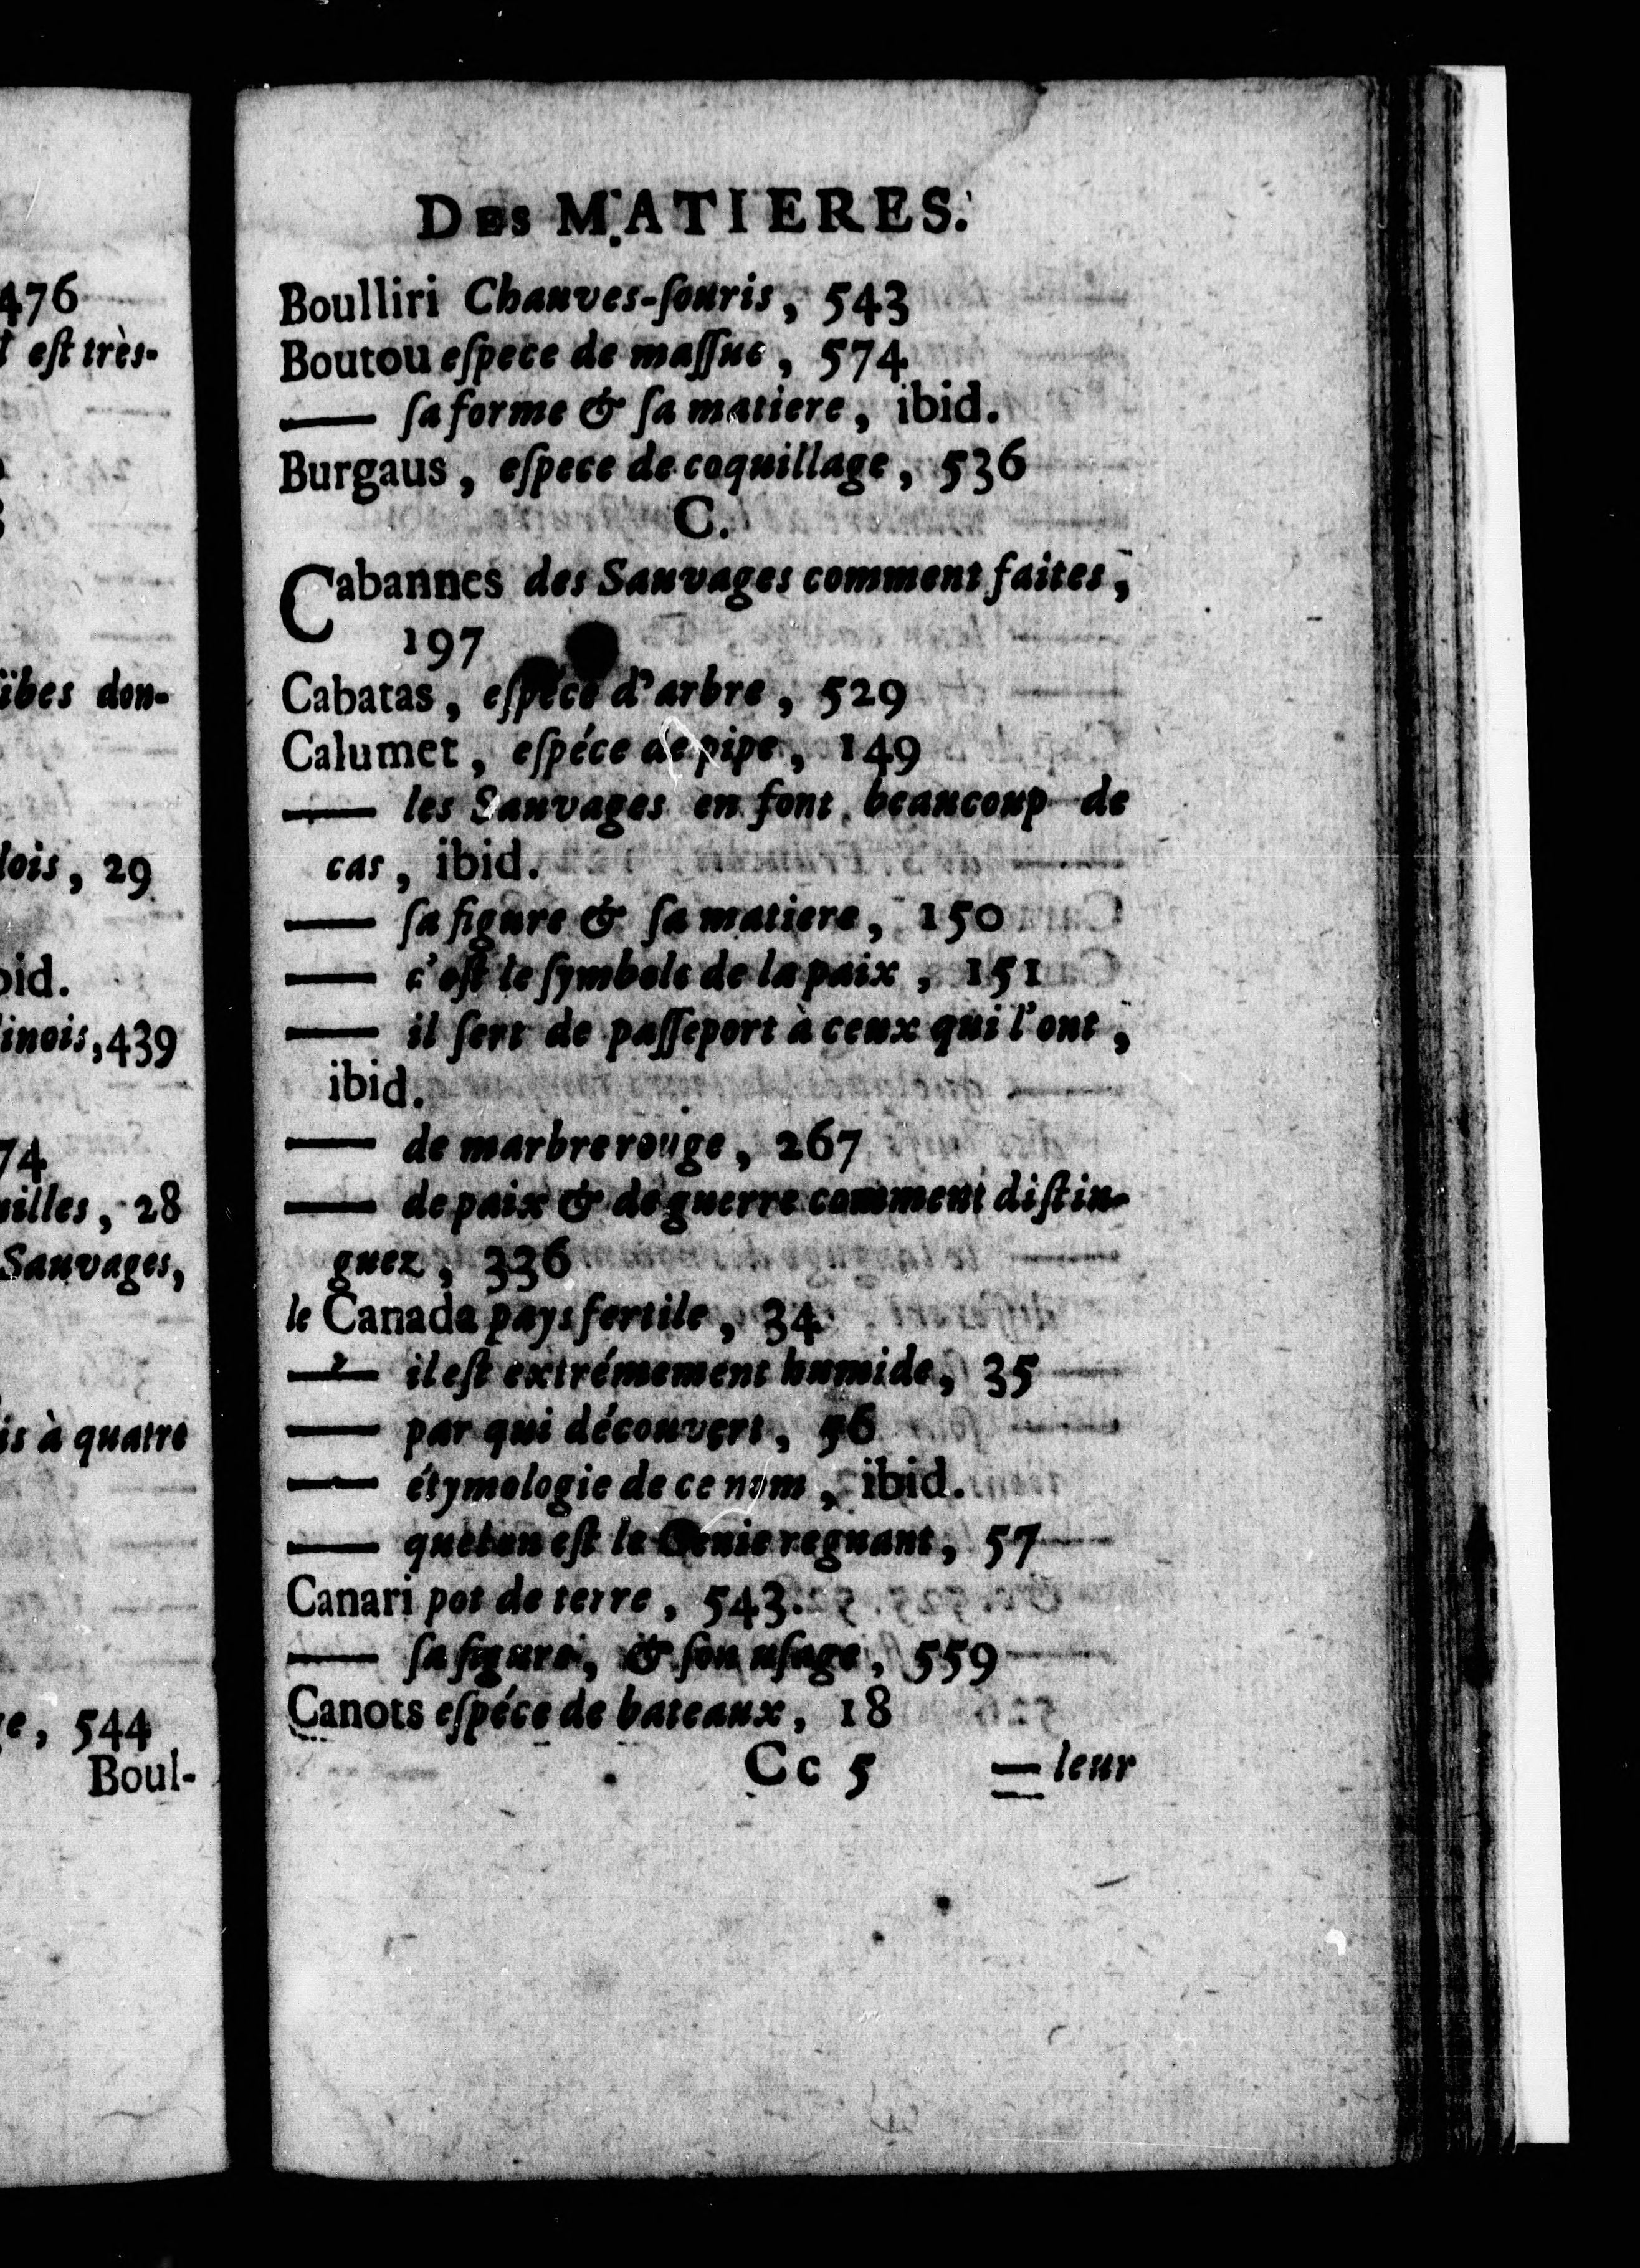 476
est très-
ïbes don-
lois, 29
bid.
linois, 439
74
uilles, 28
Sauvages,
is à quatre
ge, 544
Boul-
DES MATIERES.
Boulliri Chauves-ſouris, 543
Boutou eſpece de maſſue, 574
—— ſa forme & ſa matiere, ibid.
Burgaus, eſpece de coquillage, 536
C.
Cabannes des Sauvages comment faites,
197
Cabatas, eſpéce d'arbre, 529
Calumet, eſpéce de pipe, 149
—— les Sauvages en font beaucoup de
cas, ibid.
—— ſa figure & ſa matiere, 150
—— c'eſt le ſymbole de la paix, 151
—— il ſert de paſſeport à ceux qui l'ont,
ibid.
—— de marbre rouge, 267
—— de paix & de guerre comment diſtin-
guez, 336
le Canada pays fertile, 34
—— il eſt extrémement humide, 35
—— par qui découvert, 56
—— étymologie de ce nom, ibid.
—— eſt le Genie regnant, 57
Canari pot de terre, 543.
—— ſa figure, & ſon uſage, 559
Canots eſpéce de bateaux, 18
Cc 5 — leur